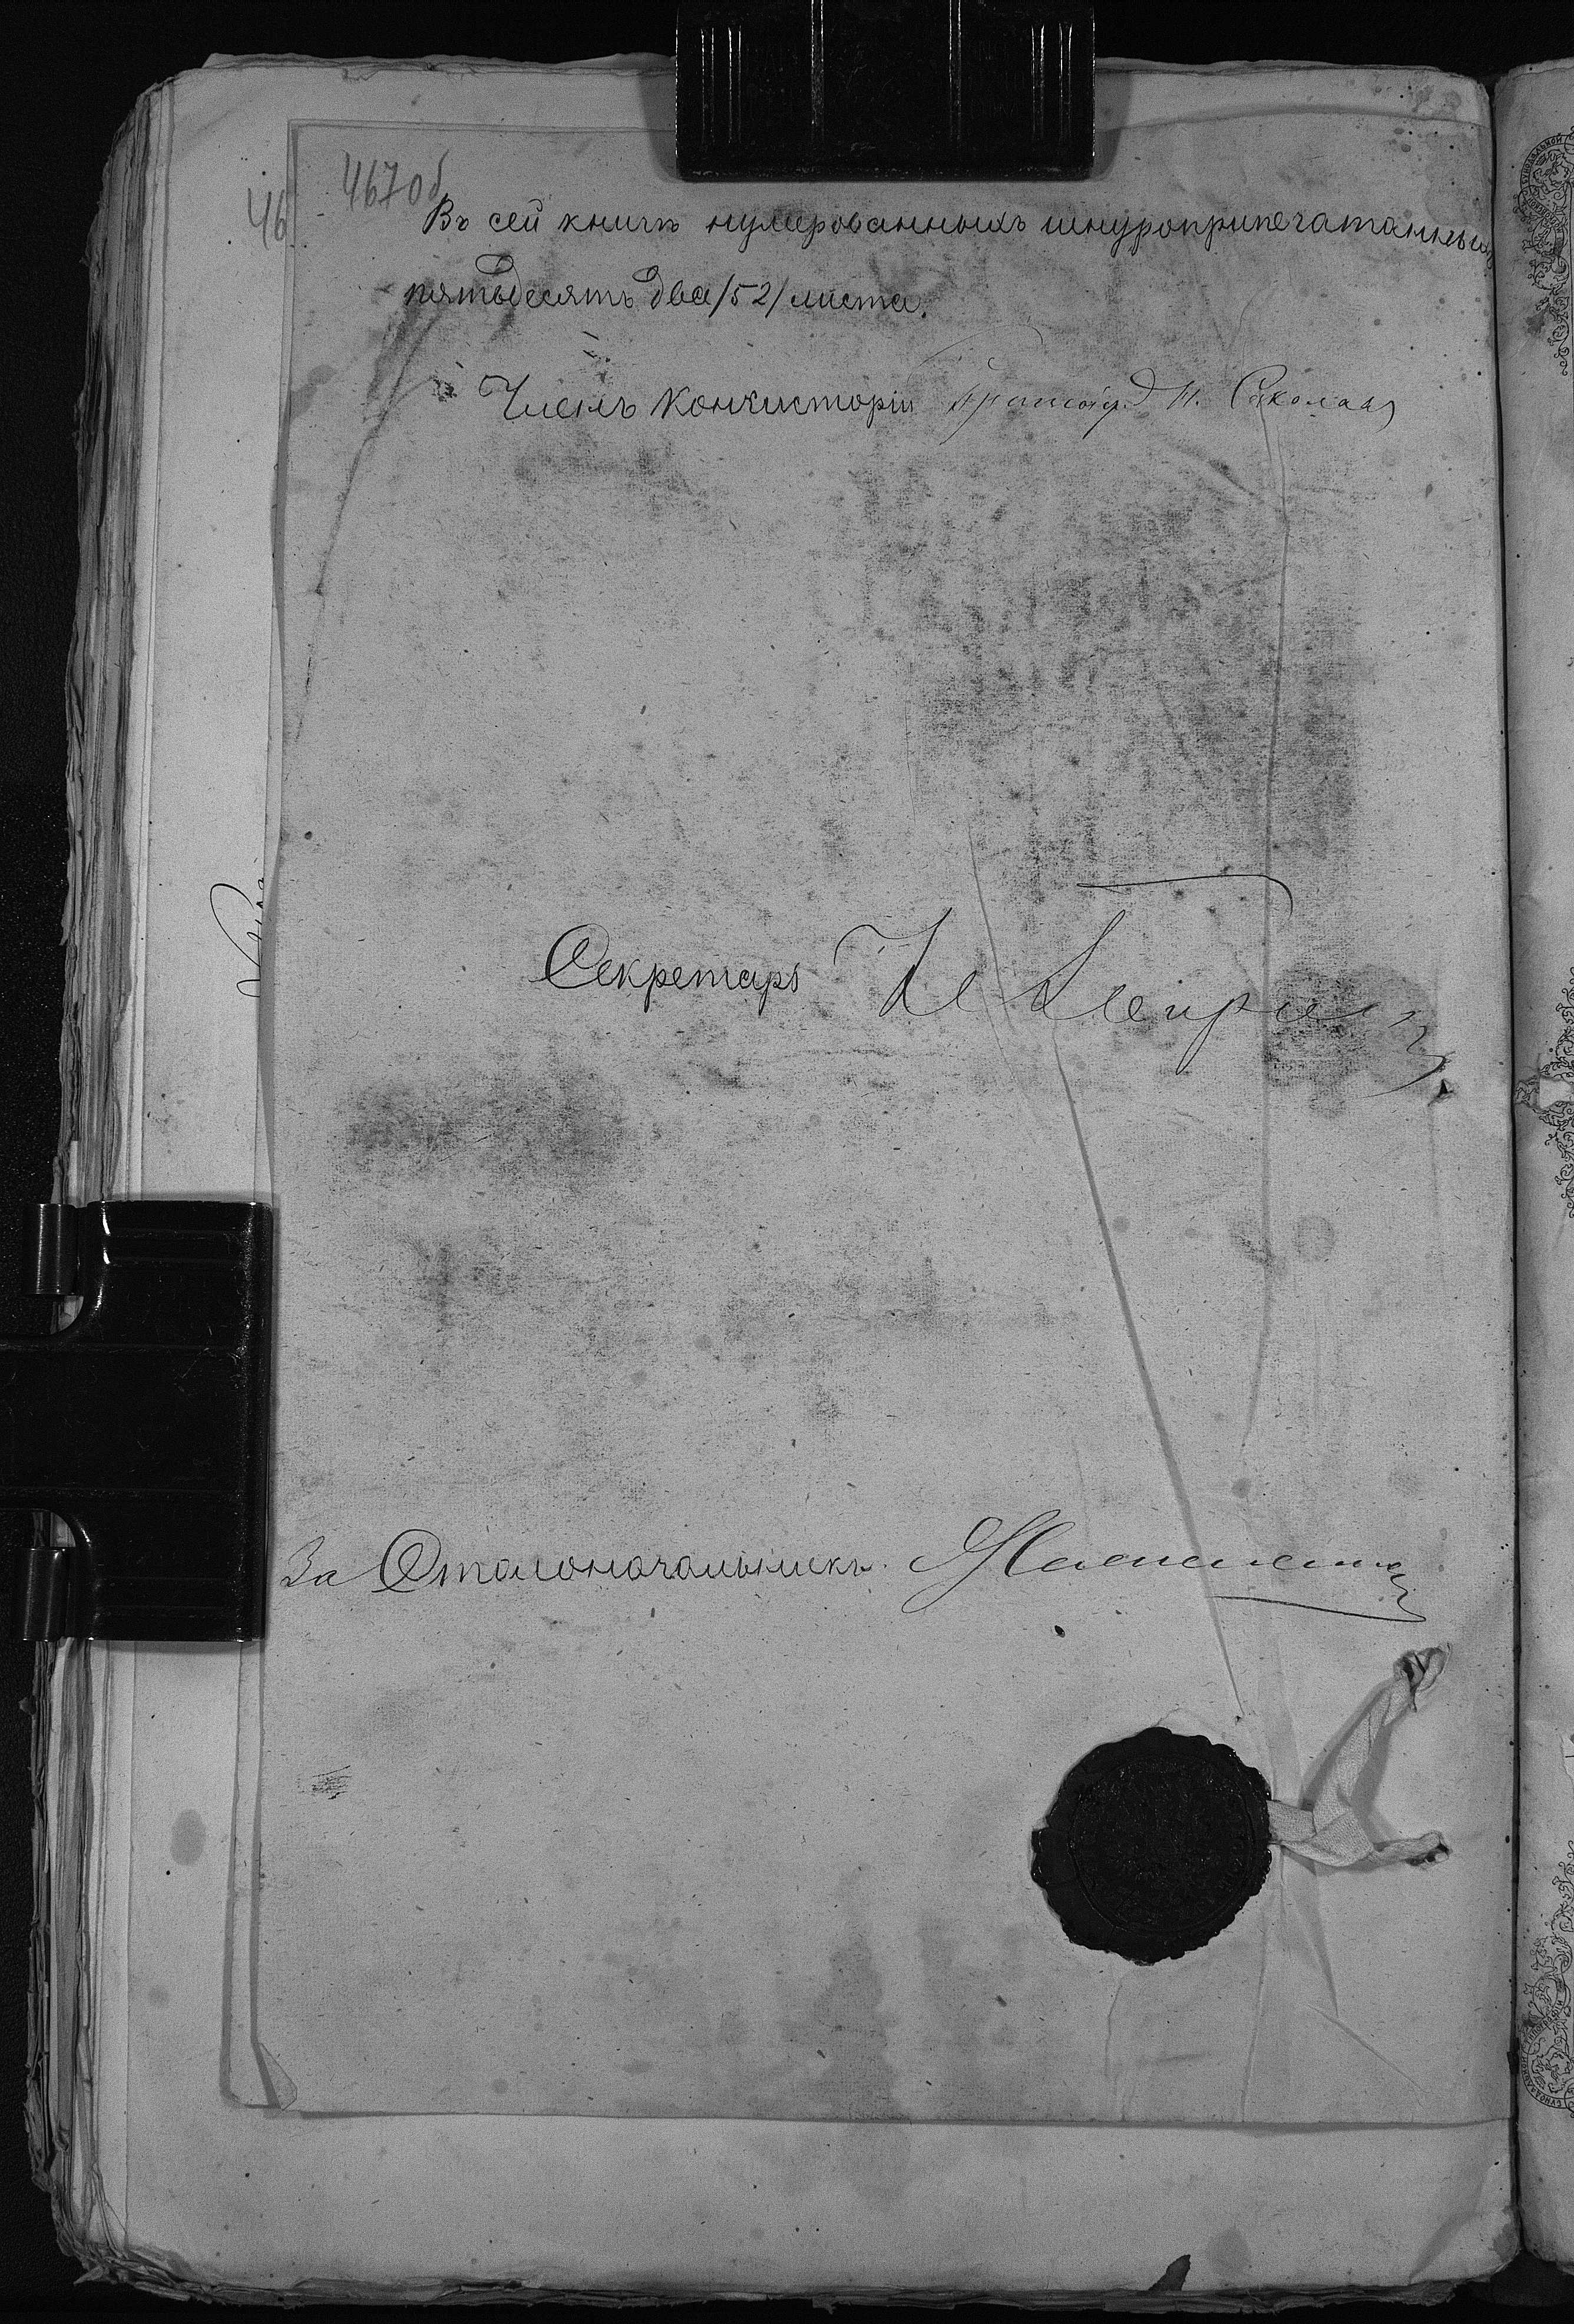 467об
46
Въ сей книгѣ нумерованныхъ шнуроприпечатанныхъ
пятьдесятъ два /52/ листа.
Членъ Консисторіи Н. Соколовъ
Секретарь
За Столоначальника